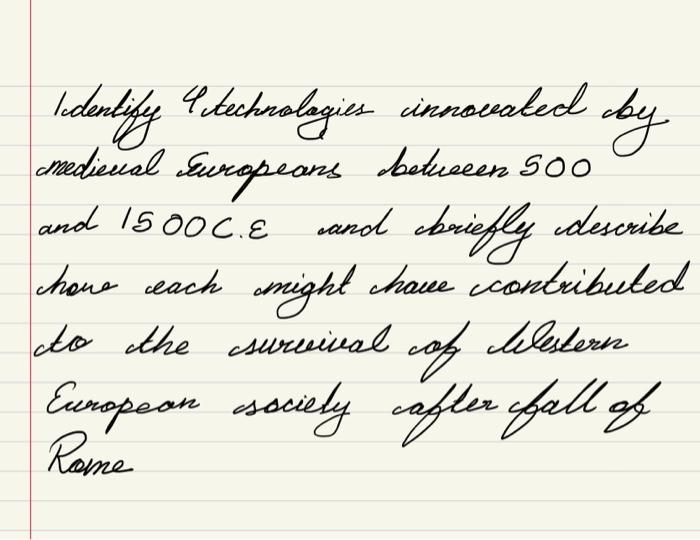 Identify 4 technologies innovated by
medieval Europeans between 500
and 1500 C.E and briefly describe
how each might have contributed
to the survival of Western
European society after fall of
Rome